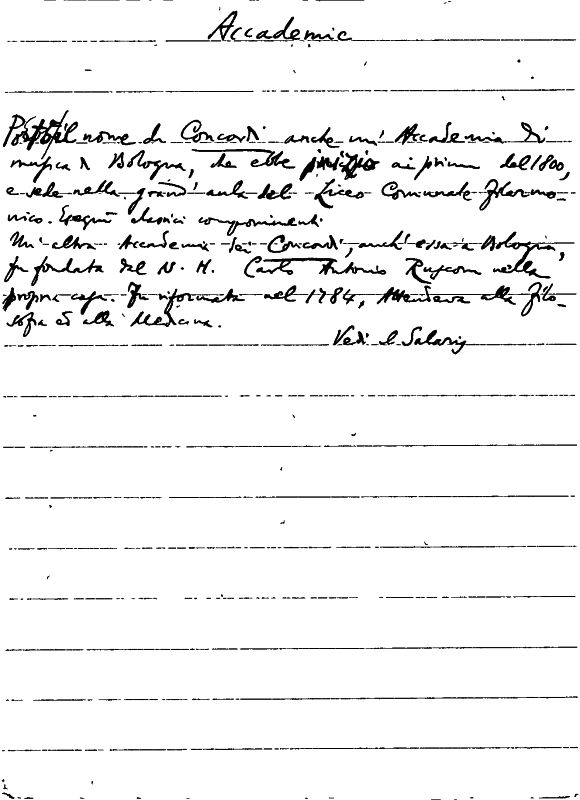 Accademie
Portò il nome di Concordi anche un' Accademia di
musica di Bologna, che ebbe inizio ai primi del 1800,
e sede nella grand' aula del Liceo Comunale Filarmo-
nico. Eseguì classici componimenti
Un' altra Accademia dei Concordi, anch' essa a Bologna,
fu fondata dal N. H. Carlo Antonio Rusconi nella
propria casa. Fu riformata nel 1784, Attendeva alla Filo-
sofia ed alla Medicina.
Vedi il